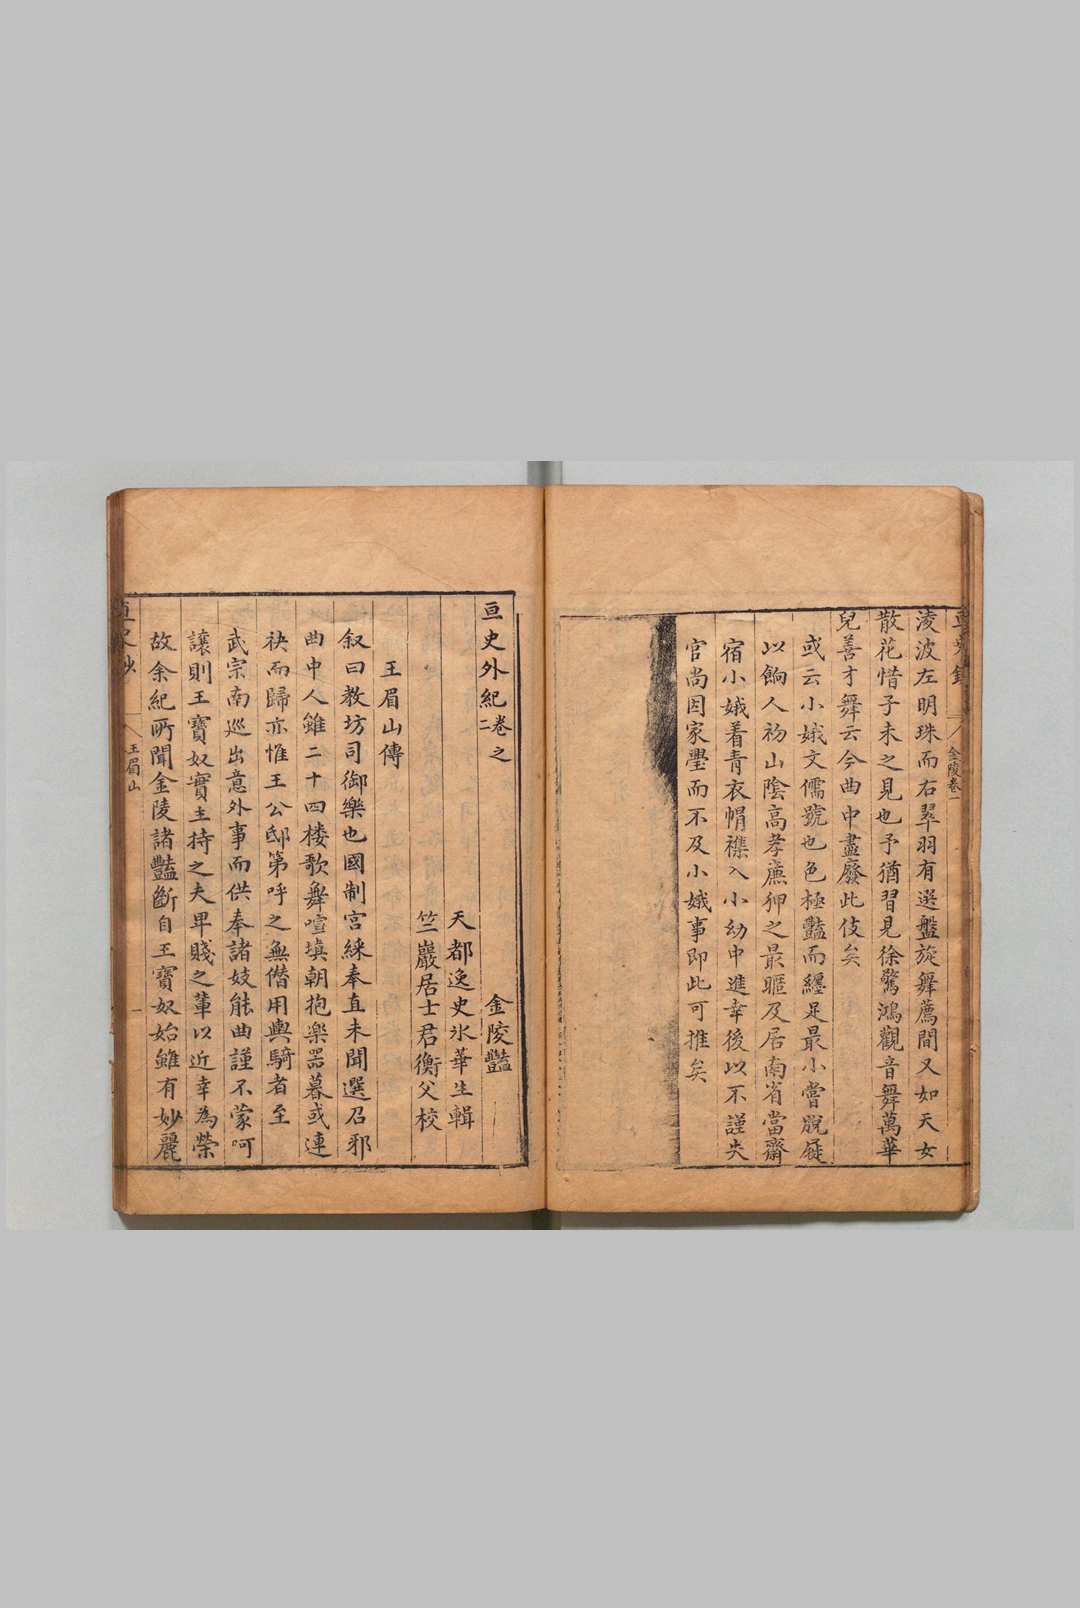 金陵卷一
淩波左明珠而右翠羽有選盤旋舞薦間又如天女
散花惜子未之見也予猶習見徐驚鴻觀音舞萬華
兒善才舞云今曲中盡廢此伎矣
或云小娥文儒號也色極豔而纏足最小嘗脫屣
以餉人初山陰高孝廉狎之最暱及居南省當齋
宿小娥着青衣帽襍入小幼中進幸後以不謹失
官尚因家璺而不及小娥事即此可推矣
亘史外紀卷之二
金陵豔
天都逸史氷華生輯
竺巖居士君衡父校
王眉山傳
叙曰教坊司御樂也國制宮綵奉直未聞選召邪
曲中人雖二十四楼歌舞喧填朝抱楽器暮或連
袂而歸亦惟王公邸第呼之無僭用輿騎者至
武宗南巡出意外事而供奉諸妓能曲謹不蒙呵
讓則王寶奴實主持之夫卑賤之輩以近幸為榮
故余紀所聞金陵諸豔斷自王寶奴始雖有妙麗
亘史鈔
王眉山
一